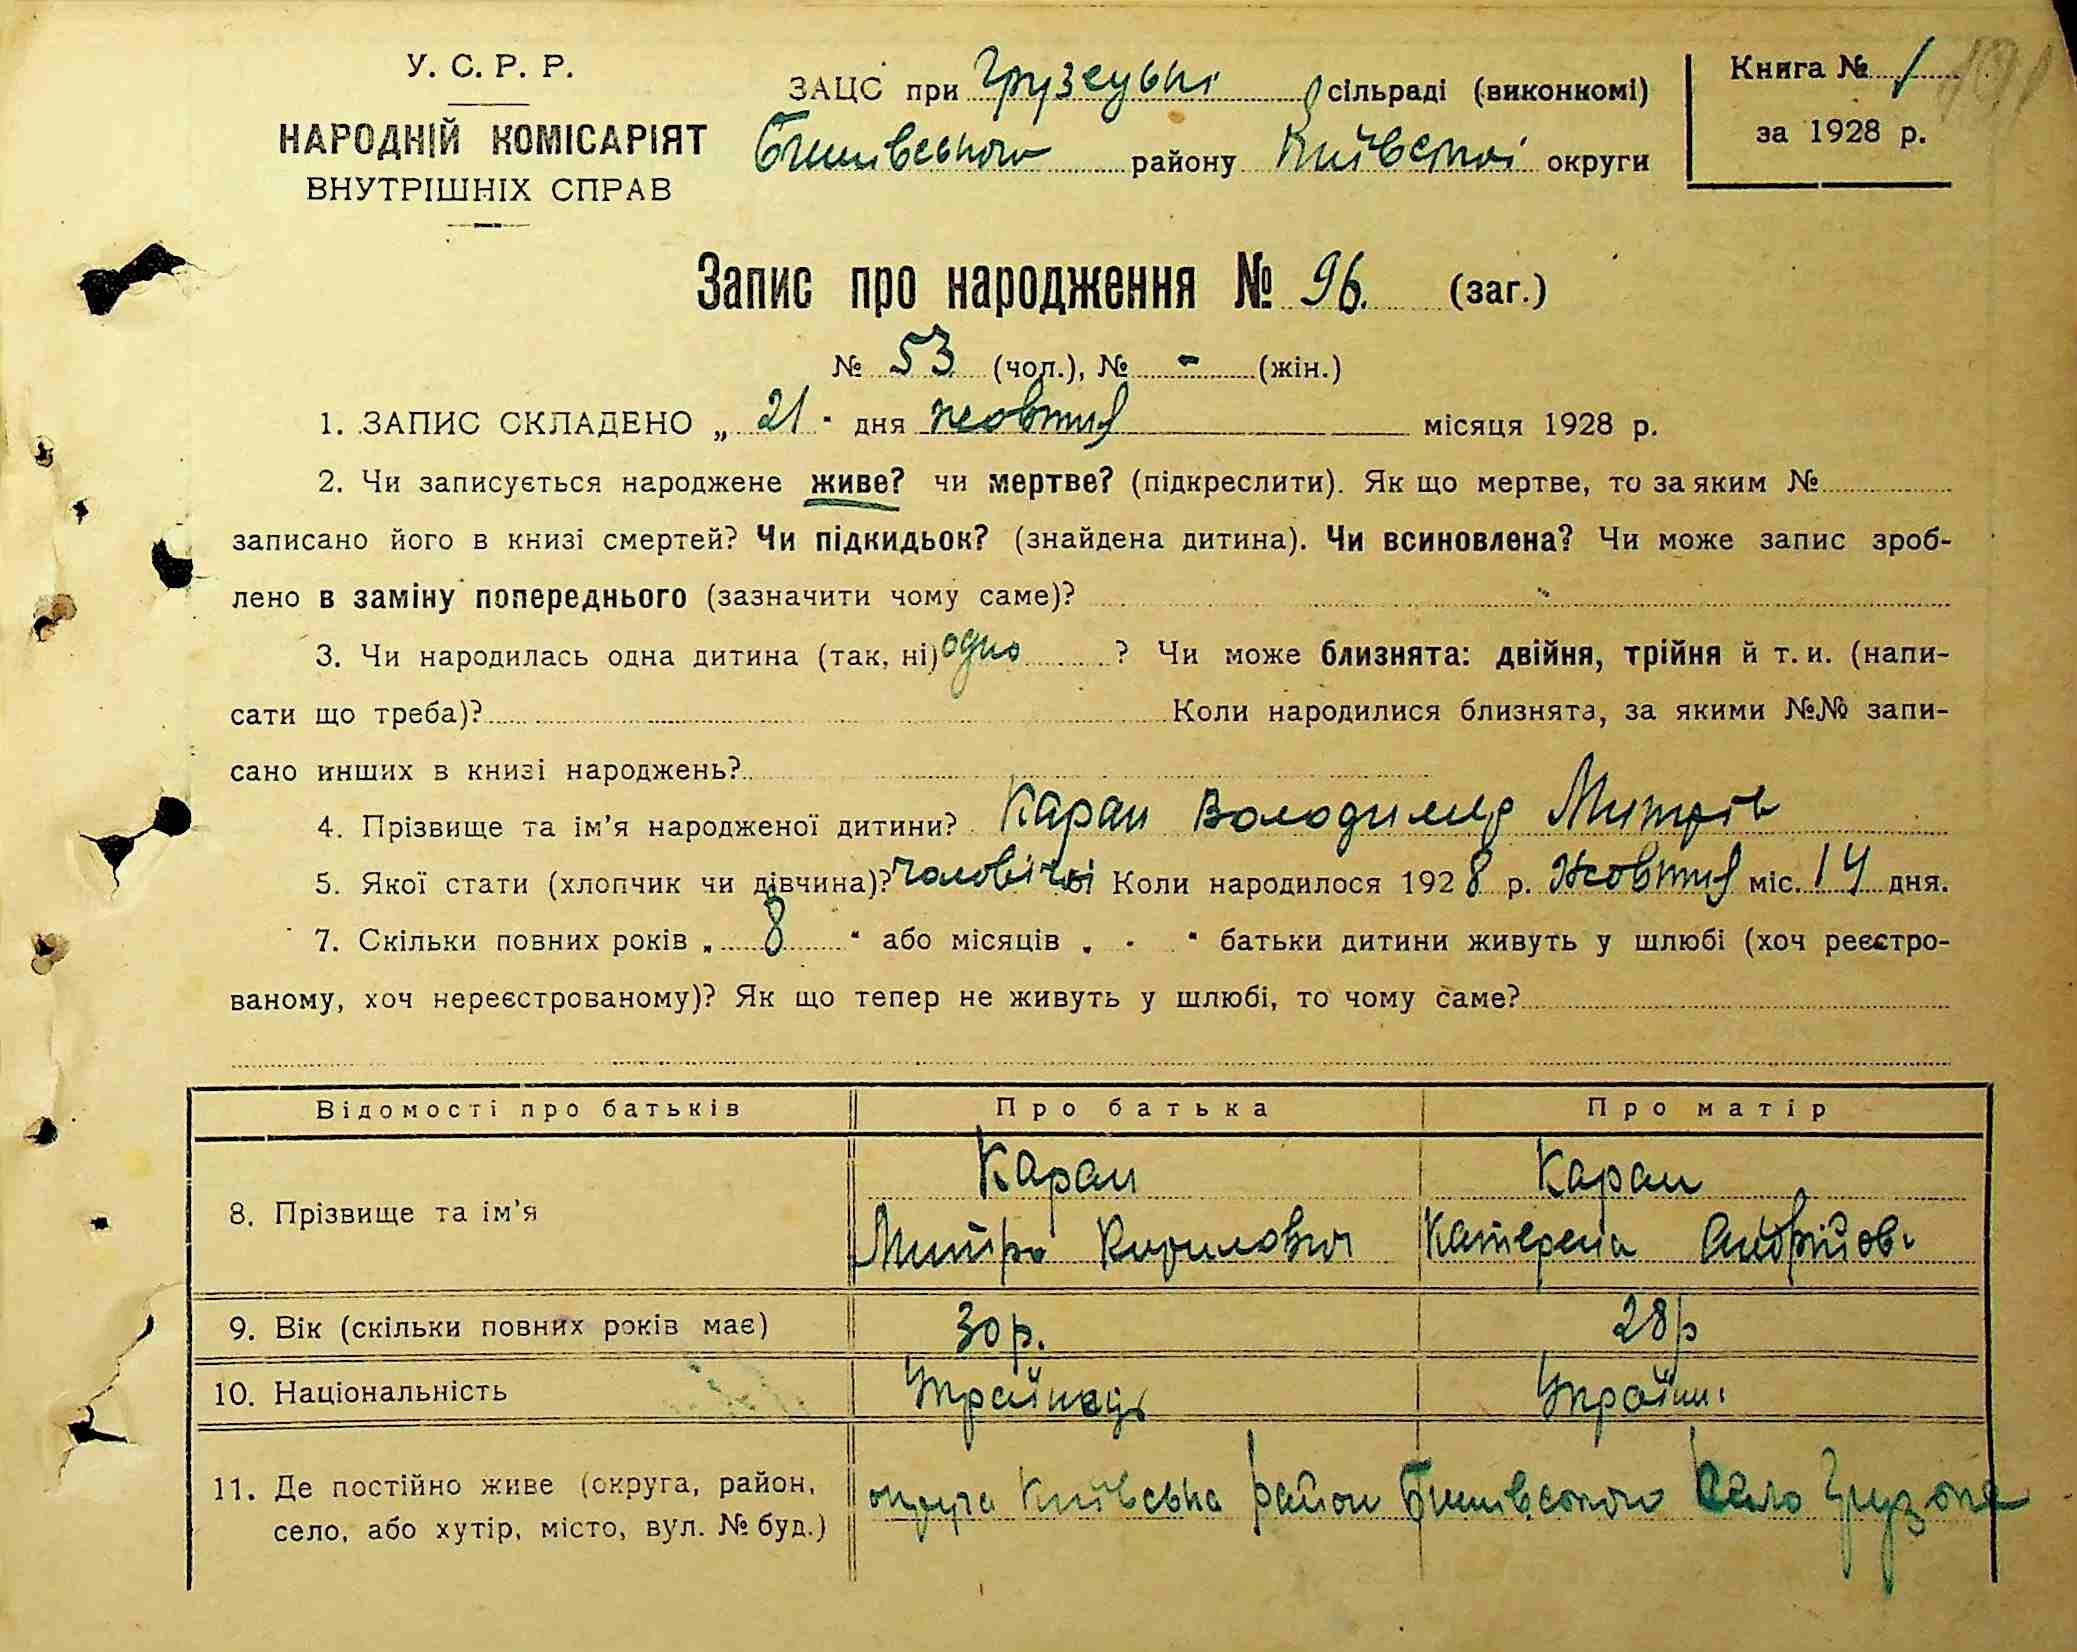 У. С. Р. Р.
НАРОДНІЙ КОМІСАРІЯТ
ВНУТРІШНІХ СПРАВ
ЗАЦС при Грузецькі сільраді (виконкомі)
Бишівського району Київської округи
Книга № 1
за 1928 р.
191
Запис про народження № 96. (заг.)
№ 53 (чол.), № - (жін.)
1. ЗАПИС СКЛАДЕНО „ 21 " дня жовтня місяця 1928 р.
2. Чи записується народжене живе? чи мертве? (підкреслити). Як що мертве, то за яким №
записано його в книзі смертей? Чи підкидьок? (знайдена дитина). Чи всиновлена? Чи може запис зроб-
лено в заміну попереднього (зазначити чому саме)?
3. Чи народилась одна дитина (так, ні) одно ? Чи може близнята: двійня, трійня й т. и. (напи-
сати що треба)? Коли народилися близнята, за якими №№ запи-
сано инших в книзі народжень?
4. Прізвище та ім'я народженої дитини? Каран Володимир Митрів
5. Якої стати (хлопчик чи дівчина)? чоловічої Коли народилося 1928 р. Жовтня міс. 14 дня.
7. Скільки повних років „ 8 " або місяців „ - " батьки дитини живуть у шлюбі (хоч реєстро-
ваному, хоч нереєстрованому)? Як що тепер не живуть у шлюбі, то чому саме?
Відомості про батьків Про батька Про матір
8. Прізвище та ім'я Каран Каран
Митро Кирилович Катерена Андріїов
9. Вік (скільки повних років має) 30 р. 28 р
10. Національність Україньець Україн
11. Де постійно живе (округа, район, округа Київська район Бишівського село Грузьке
село, або хутір, місто, вул. № буд.)